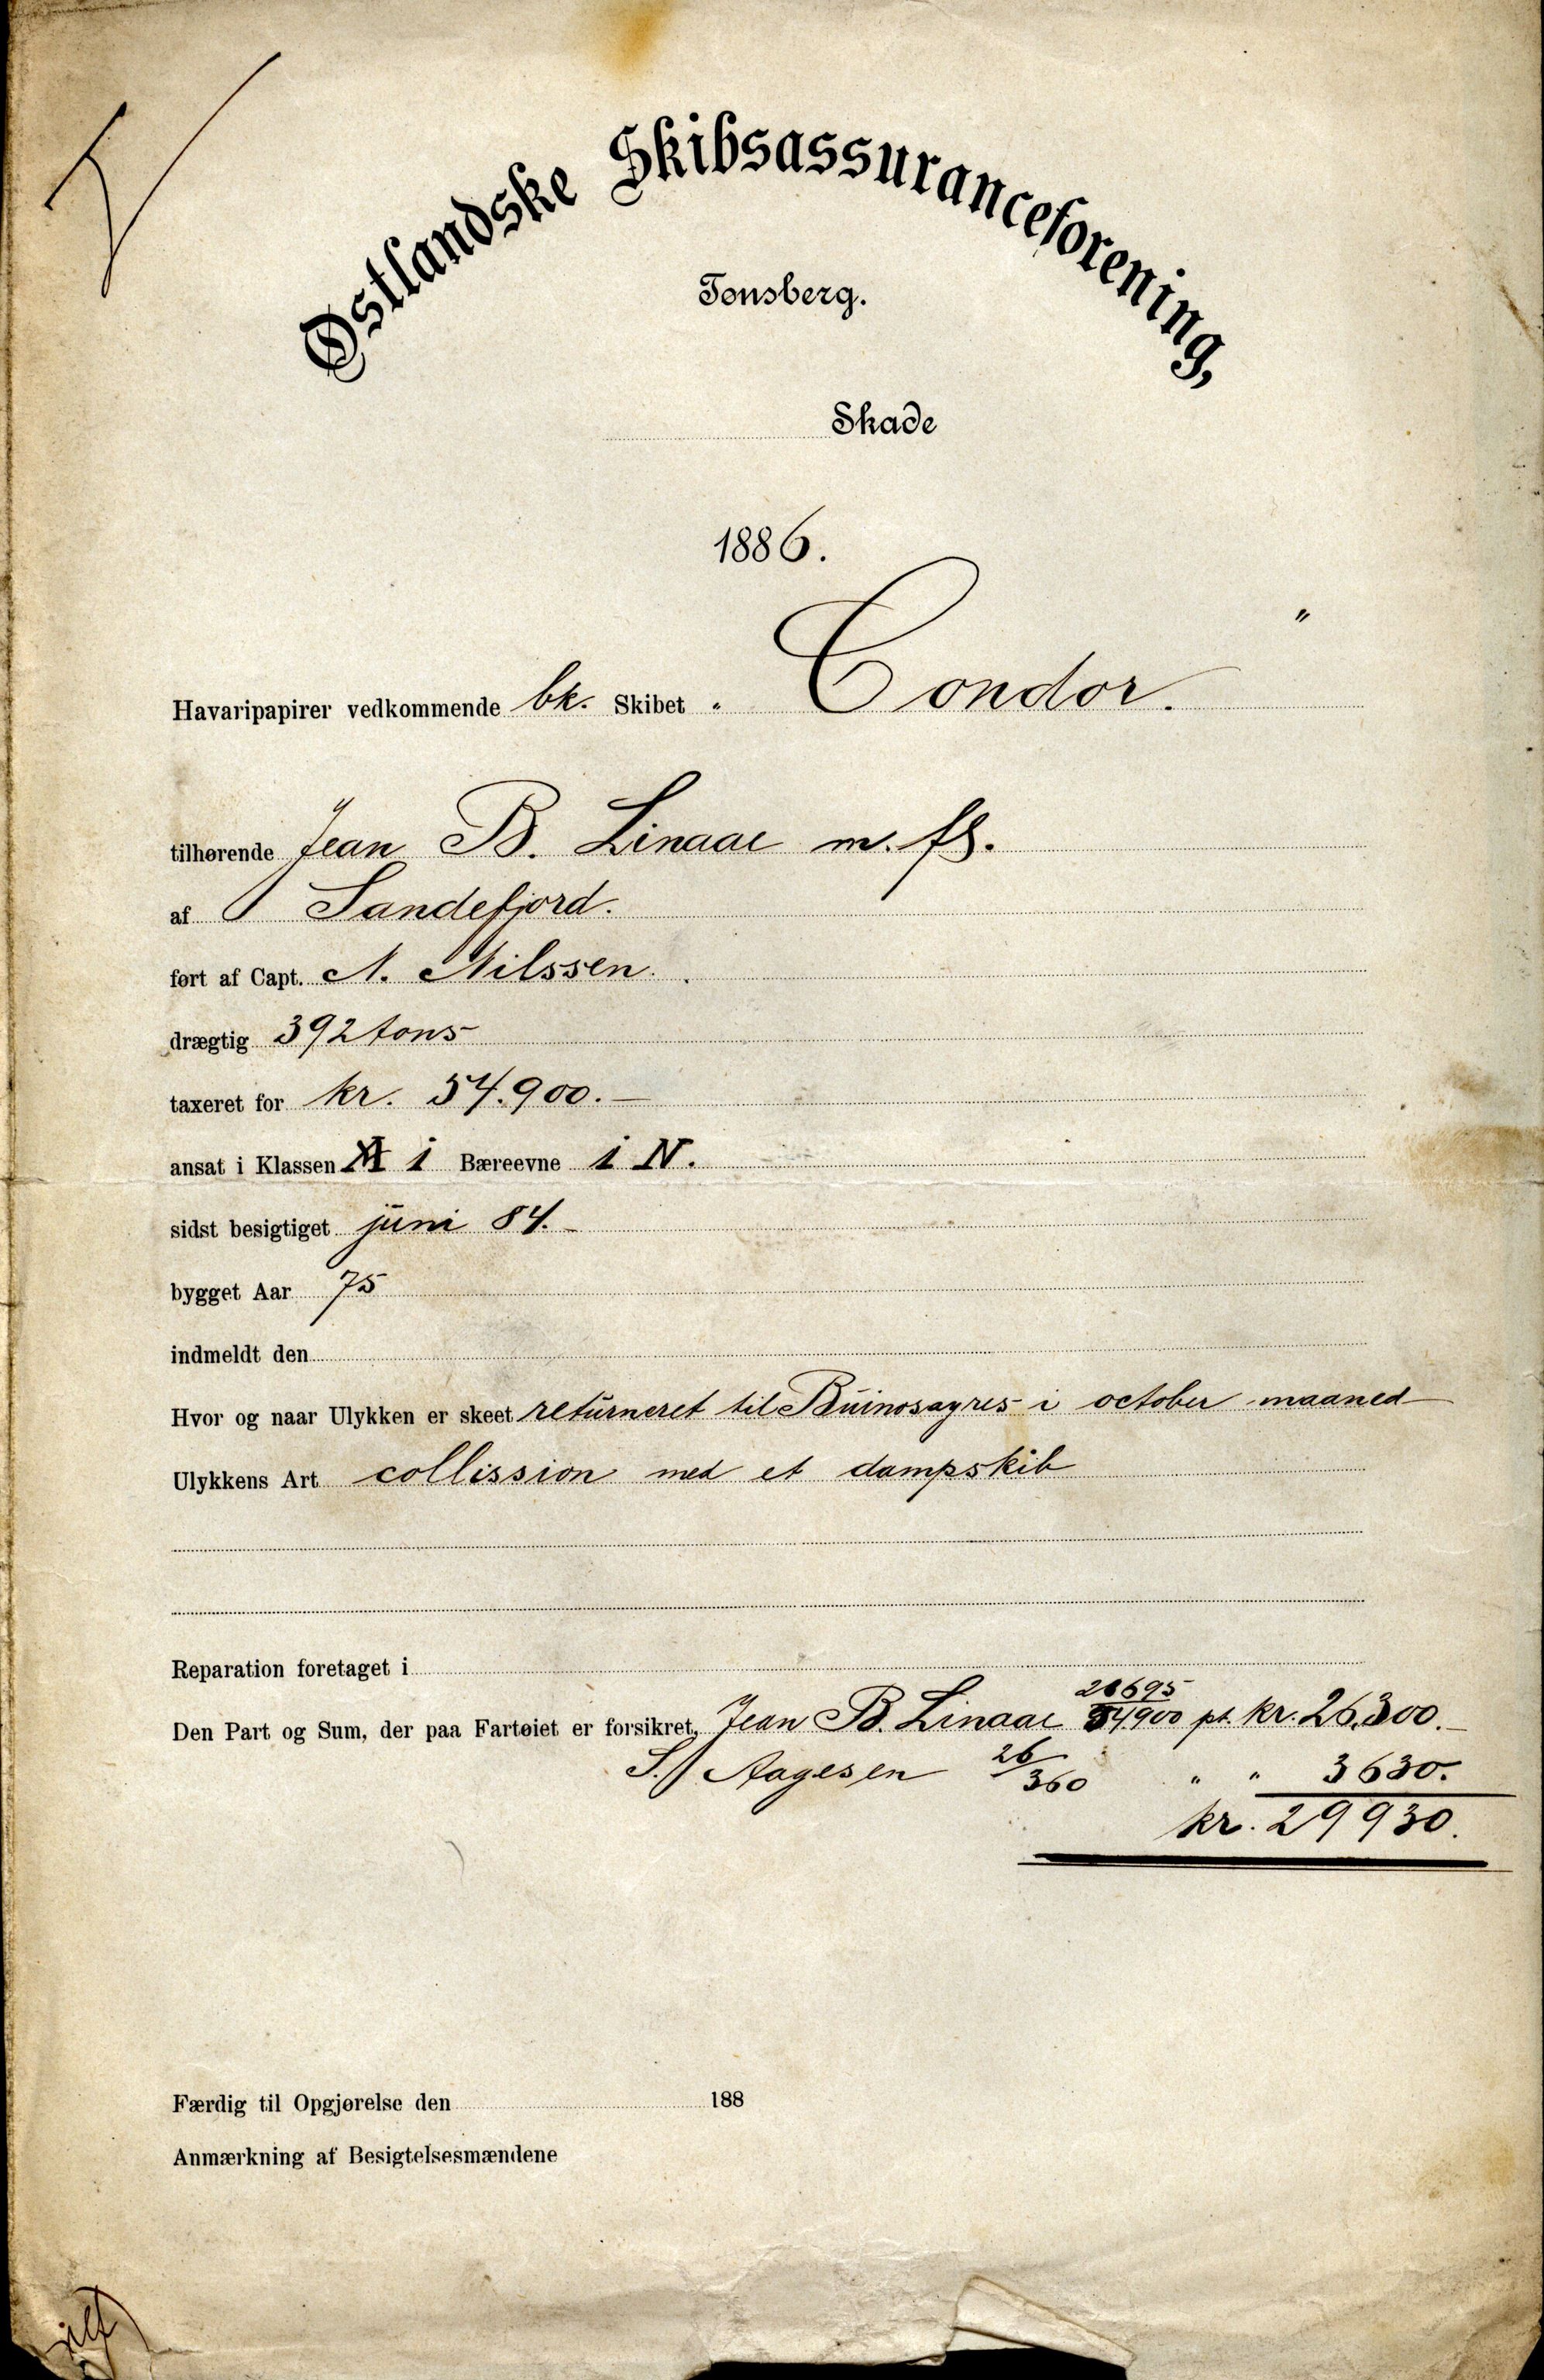 Østlandske Skibsassuranceforening,
Tønsberg.
Skade
1886.
Havaripapirer vedkommende bk. Skibet " Condor. "
tilhørende Jean B. Linaae m. fl.
af Sandefjord.
ført af Capt. N. Nilssen.
drægtig 392 tons
taxeret for kr. 54.900.—
ansat i Klassen A 1 Bæreevne 1 N.
sidst besigtiget juni 84.
bygget Aar 75
indmeldt den
Hvor og naar Ulykken er skeet returneret til Buinosayres i october maaned
Ulykkens Art collission med et dampskib
Reparation foretaget i
Den Part og Sum, der paa Fartøiet er forsikret, Jean B. Linaae 28695/54900 pt. kr. 26,300.—
S. Aagesen 26/360 " " 3630.
kr. 29930.
Færdig til Opgjørelse den 188
Anmærkning af Besigtelsesmændene